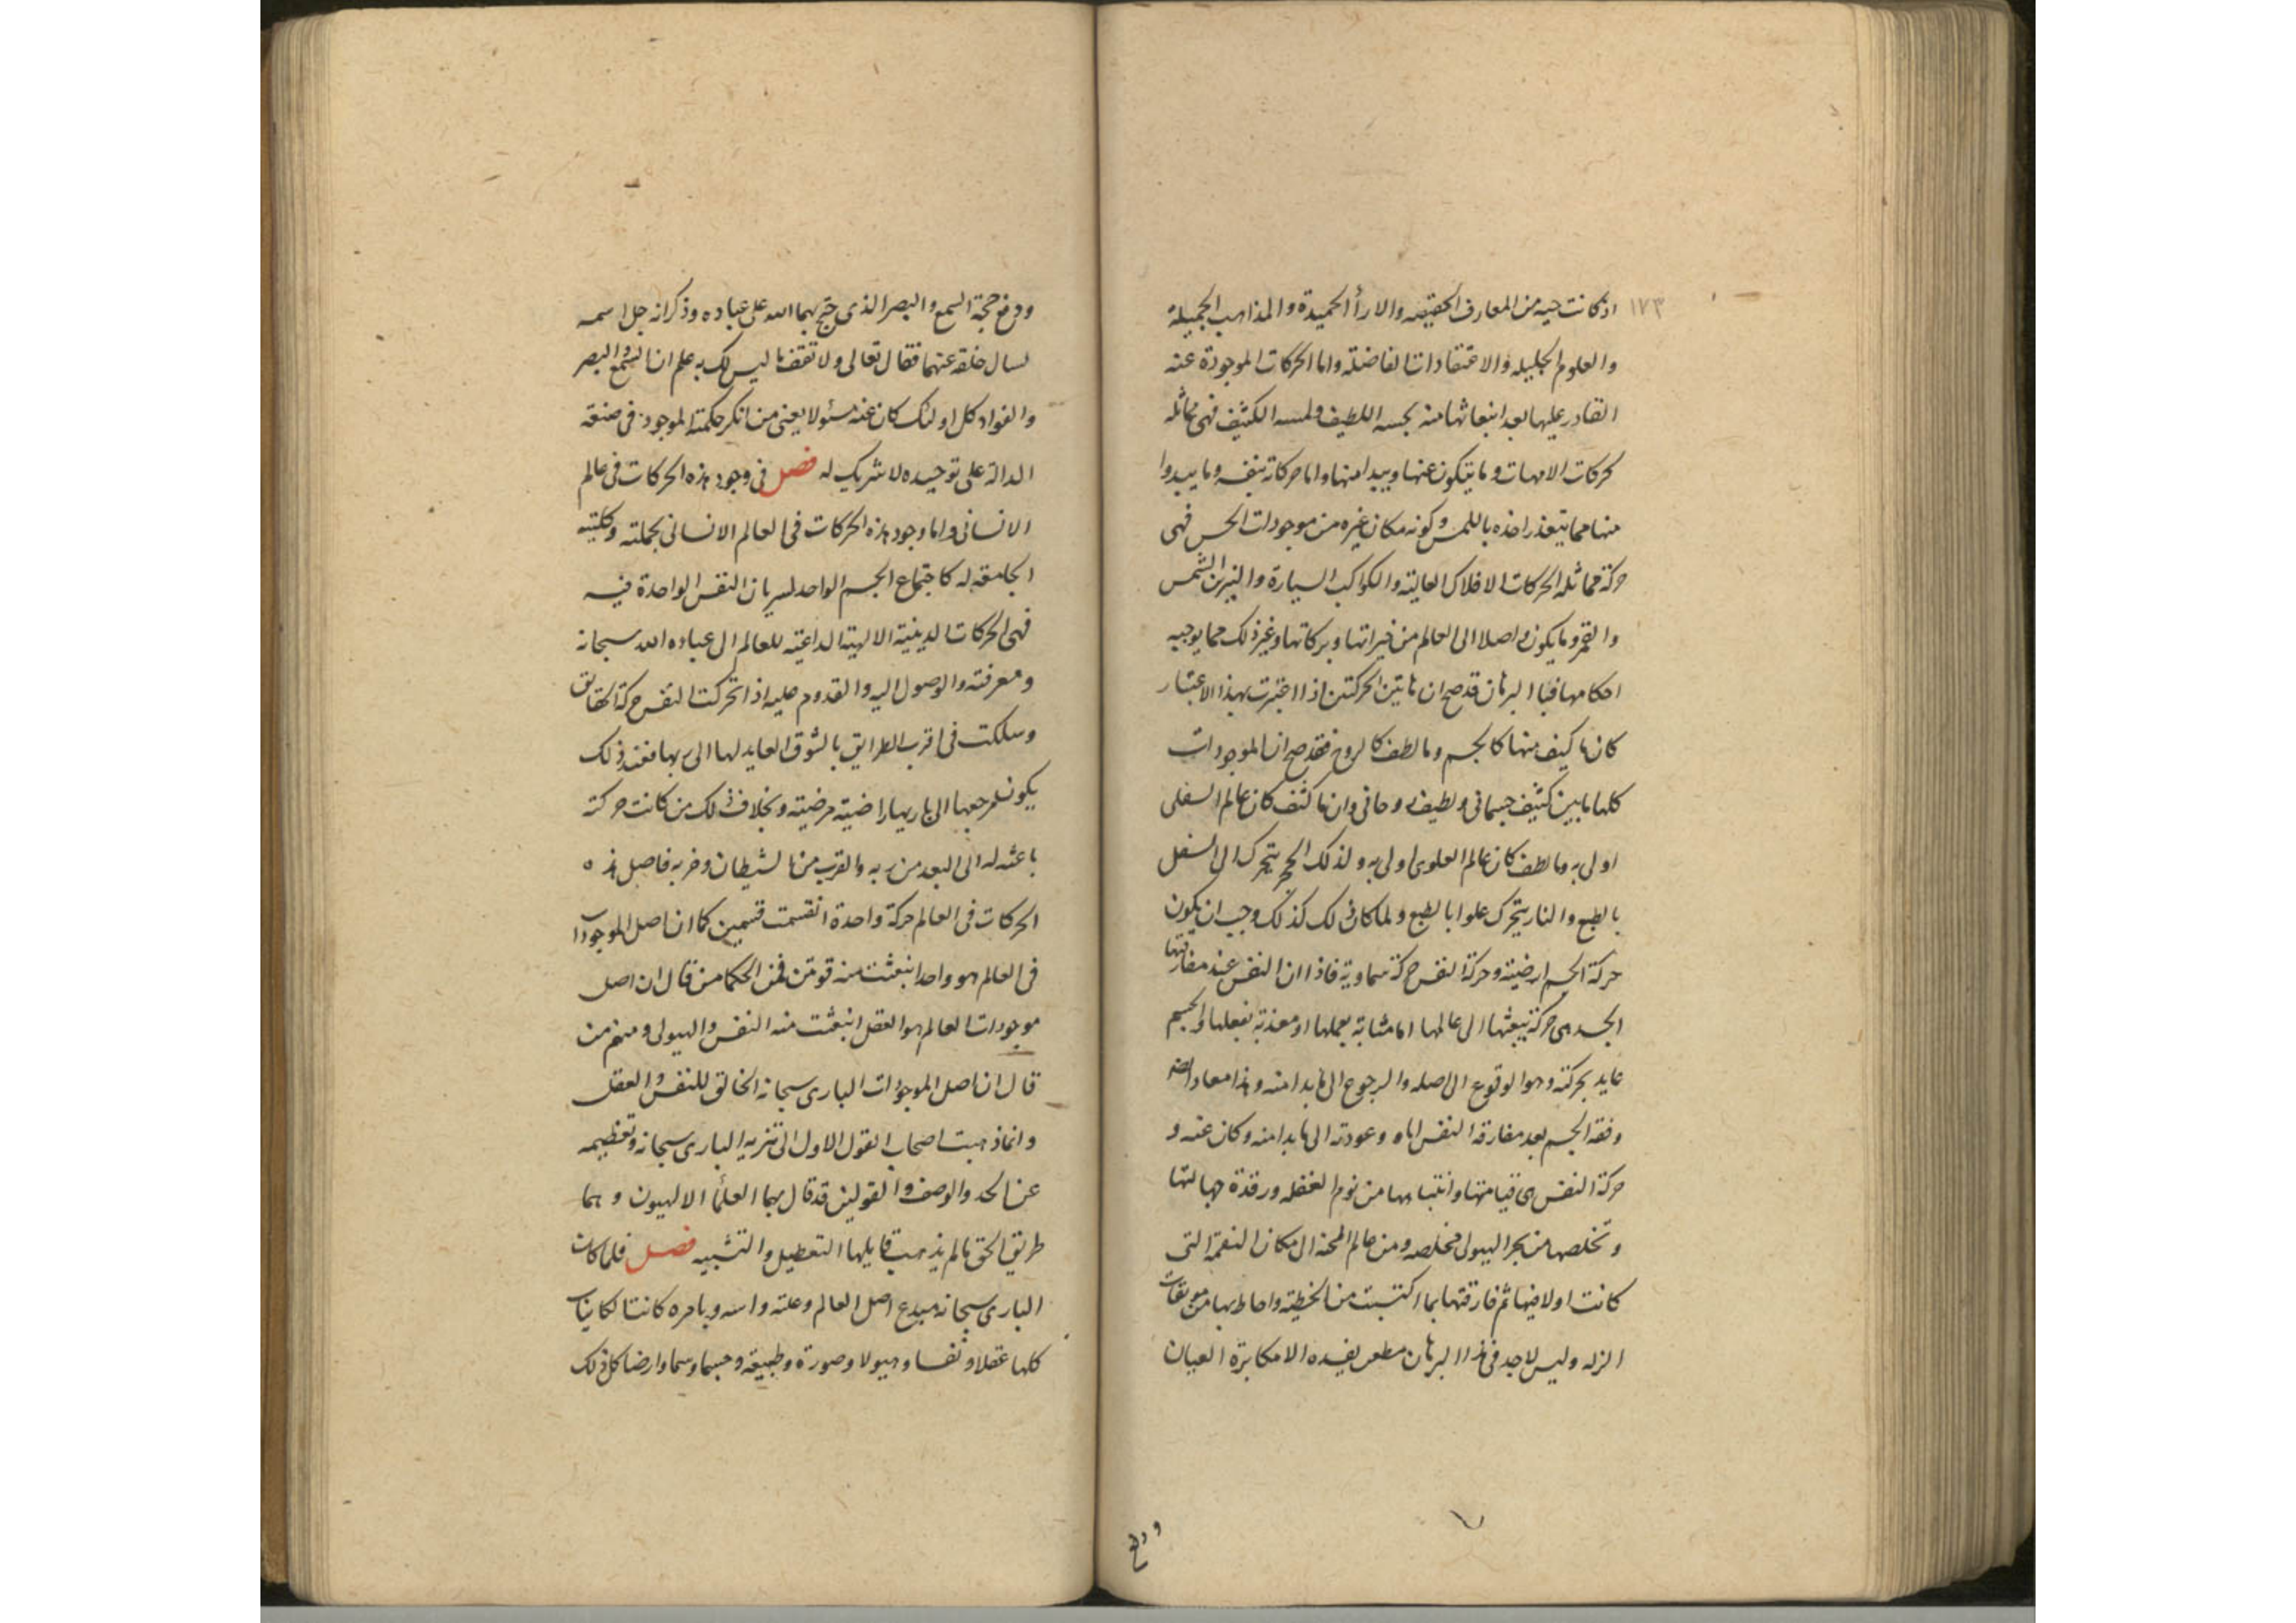 ١٧٣
اذ كانت حيه من المعارف الحقيقيه والاراأ الحميدة والمذاهب الجميلة
والعلوم الجليله والاعتقادات الفاضلة واما الحركات الموجودة عنه
القادر عليها بعد انبعاثها منه بجسه اللطيف ولمسه الكثيف فهى مماثله
كحركات الامهات وما يتكون عنها ويبدا منها واما حركاته بنفسه وما يبدوا
منها مما يتعذر اخذه باللمس وكونه مكان غيره من موجودات الحس فهى
حركة مماثله الحركات الافلاك العالية والكواكب السيارة والنيرين الشمس
والقمر وما يكون واصلا الى العالم من خيراتها وبركاتها وغير ذلك مما يوجبه
احكامها فبا البرهان قد صح ان هاتين الحركتين اذا اختبرت بهذا الاعتبار
كان ما كيف منها كالجسم وما لطف كالروح فقد صح ان الموجودات
كلها ما بين كثيف جسمانى ولطيف روحانى وان ما كثف كان عالم السفلى
اولى به وما لطف كان عالم العلوى اولى به ولذلك الحجر يتحرك الى السفل
بالطبع والنار يتحرك علوا بالطبع ولما كان ذلك كذلك وجب ان يكون
حركة الجسم ارضية وحركة النفس حركة سماوية فاذا ان النفس عند مفارقتها
الجسد هى حركة يبعثها الى عالمها اما مثابة بعملها او معذبة بفعلها والجسم
عايد بحركته وهو الوقوع الى اصله والرجوع الى ما بدا منه وهذا معاد ارضه
وفقه الجسم بعد مفارقه النفس اياه وعودته الى ما بدا منه وكان عنه و
حركة النفس هى قيامتها وانتباهها من نوم الغفله ورقدة جهالتها
وتخلصها من بحر الهيولى مخلصه ومن عالم المحنه الى مكان النعمة التى
كانت اولا فيها ثم فارقتها بما اكتسبت من الخطية واحاط بها من موبقات
الزله وليس لاحد فى هذا البرهان مطعن يفسده الا مكابرة العيان
ودفع
ودفع حجة السمع والبصر الذى حتج بهما الله على عباده وذكر انه جل اسمه
لسال خلقه عنهما فقال تعالى ولا تقف ما ليس لك به علم ان السمع والبصر
والفواد كل اولئك كان عنه مسئولا يعنى من انكر حكمته الموجود فى صنعة
الدالة على توحيده لا شريك له فصل فى وجود هذه الحركات فى عالم
الانسانى واما وجود هذه الحركات فى العالم الانسانى بجملته وكليته
الجامعة له كاجتماع الجسم الواحد لسريان النفس الواحدة فيه
فهى الحركات الدينية الالهية الداعيته للعالم الى عباده الله سبحانه
ومعرفته والوصول اليه والقدوم عليه اذا تحركت النفس حركة الحقائق
وسلكت فى اقرب الطرايق بالشوق العايد لها الى ربها فعند ذلك
يكون مرجعها الى باريها راضية مرضية وبخلاف ذلك من كانت حركته
باعثه له الى البعد من ربه والقرب من الشيطان وحزبه فاصل هذه
الحركات فى العالم حركة واحدة انقسمت قسمين كما ان اصل الموجودات
فى العالم هو واحد انبعثت منه قوتين فمن الحكما من قال ان اصل
موجودات العالم هو العقل انبعثت منه النفس والهيولى ومنهم من
قال ان اصل الموجودات البارى سبحانه الخالق للنفس والعقل
وانما ذهبت اصحاب القول الاول الى تنزيه البارى سبحانه وتعظيمه
عن الحد والوصف والقولين قد قال بهما العلمأ الالهيون وهما
طريق الحق ما لم يذهب قايلها التعطيل والتشبيه فصل فلما كان
البارى سبحانه مبدع اصل العالم وعلته واسه وبامره كانت الكاينات
كلها عقلا ونفسا وهيولا وصورة وطبيعة وجسما وسما وارضا كل ذلك